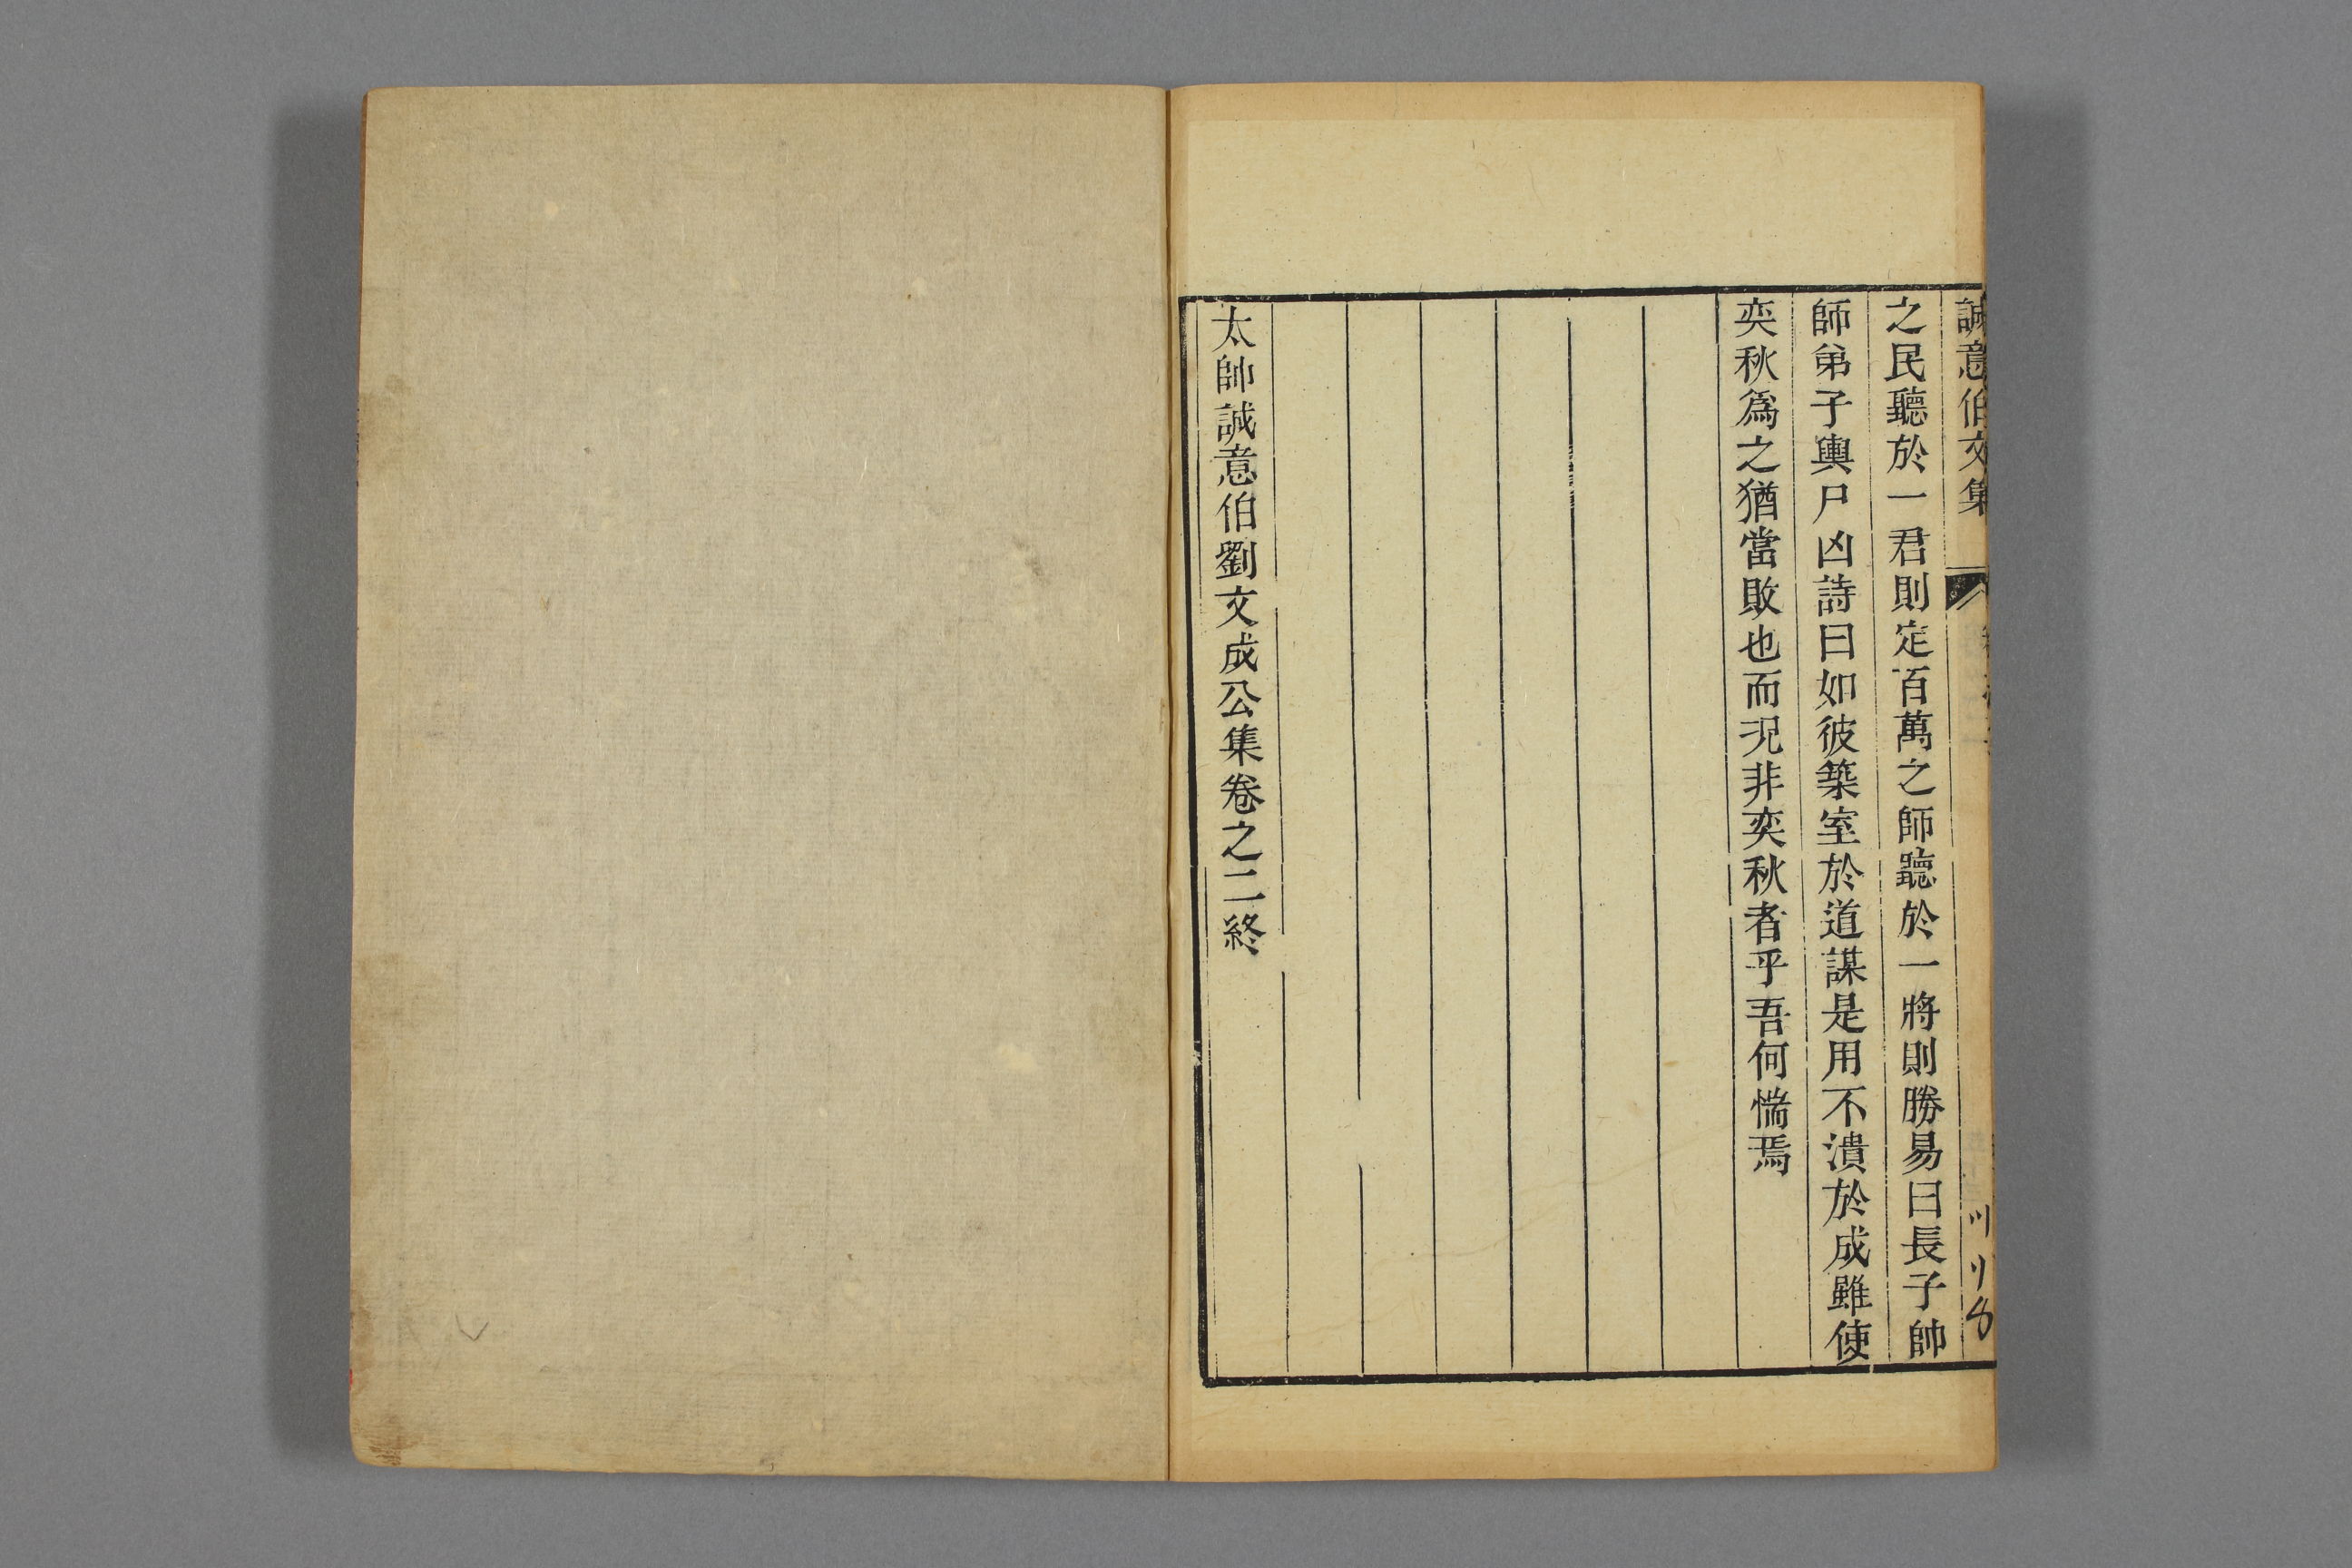 誠意伯文集
之民聽於一君則定百萬之師聽於一將則勝易曰長子帥
師弟子輿尸凶詩曰如彼築室於道謀是用不潰於成雖使
奕秋爲之猶當敗也而況非奕秋者乎吾何惴焉
太師誠意伯劉文成公集卷之二終